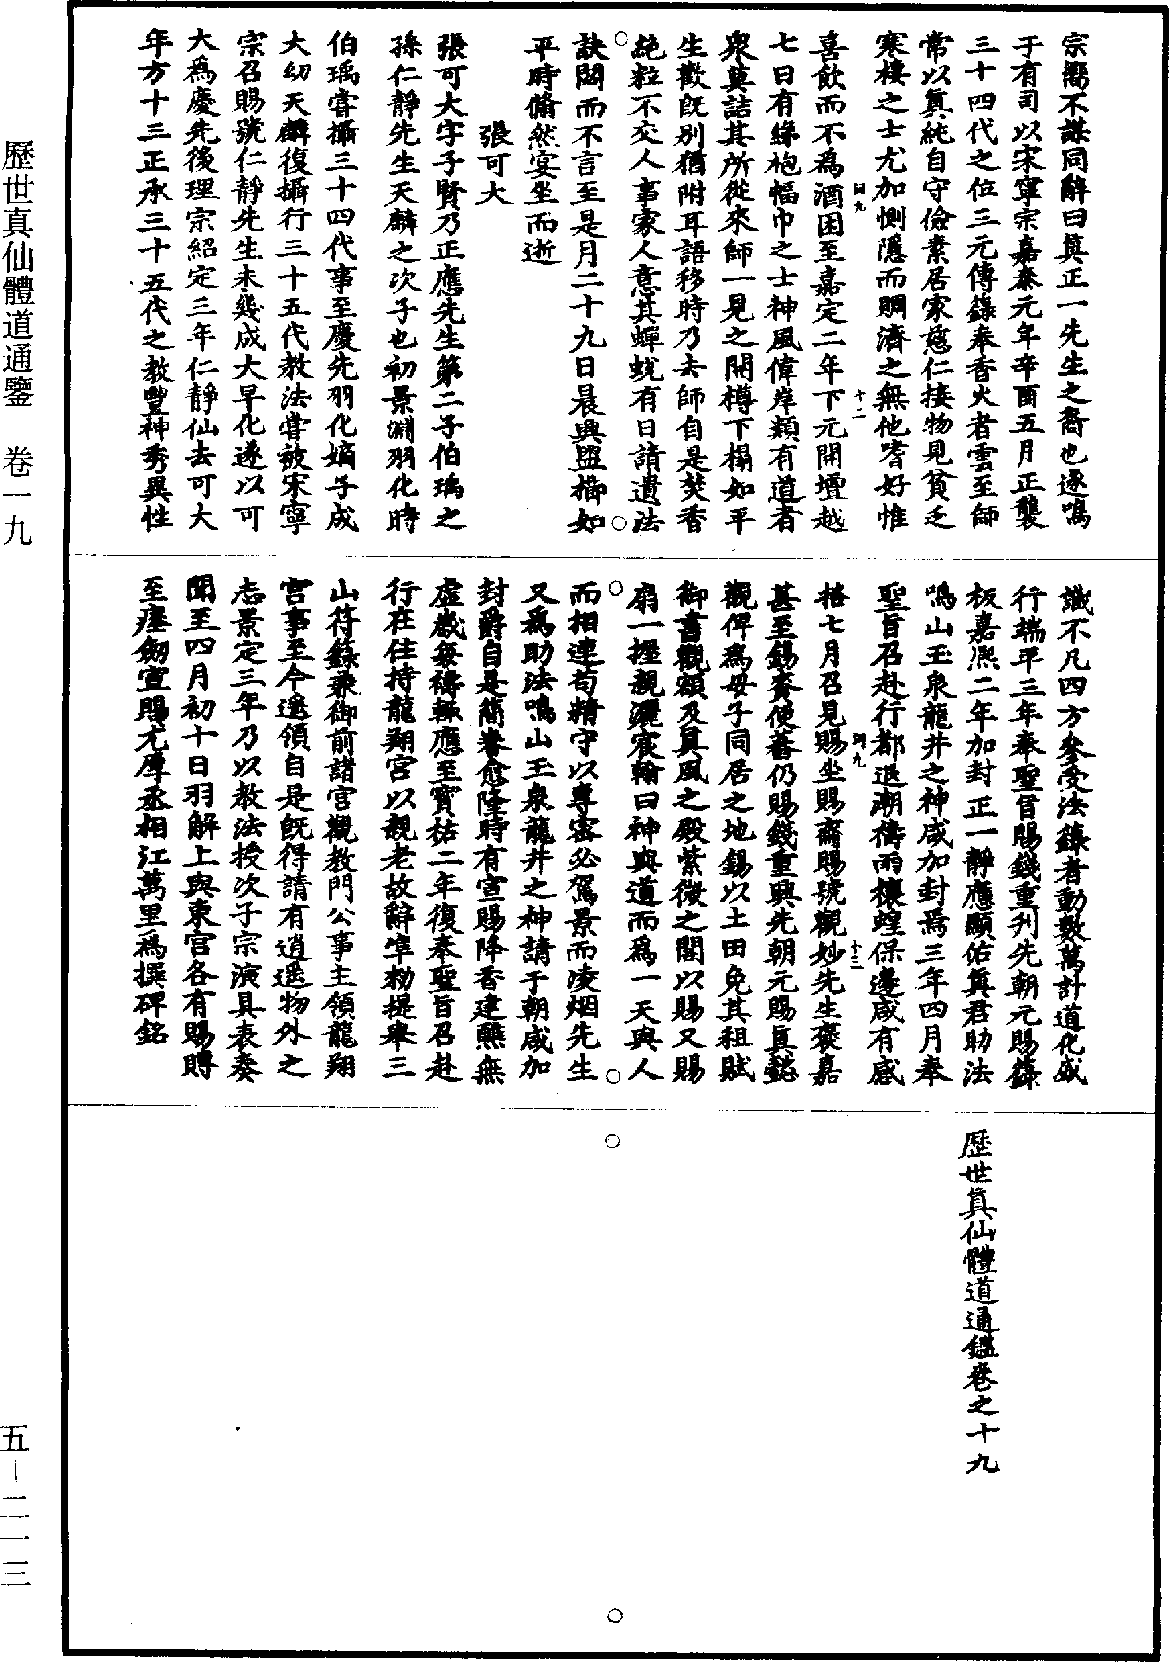 宗黨不謀同辭曰真正一先生之裔也遂鳴
于有司以宋寧宗嘉泰元年辛酉五月正襲
三十四代之位三元傳籙奉香火者雲至師
常以真純自守儉素居家慈仁接物見貧乏
寒棲之士尤加惻隱而賙濟之無他嗜好惟
喜飲而不為酒困至嘉定二年下元開壇越
七日有綠袍幅巾之士神風偉岸類有道者
眾莫詰其所從來師一見之開樽下榻如平
生歡既別猶附耳語移時乃去師自是焚香
絕粒不交人事家人意其蟬蛻有日請遺法
訣閟而不言至是月二十九日晨興盥櫛如
平時翛然宴坐而逝
張可大
張可大字子賢乃正應先生第二子伯瑀之
孫仁靜先生天麟之次子也初景淵羽化時
伯瑀嘗攝三十四代事至慶先羽化嫡子成
大幼天麟復攝行三十五代教法嘗被宋寧
宗召賜號仁靜先生未幾成大早化遂以可
大為慶先後理宗紹定三年仁靜仙去可大
年方十三正承三十五代之教豐神秀異性
識不凡四方參受法籙者動數萬計道化盛
行端平三年奉聖旨賜錢重刋先朝元賜籙
板嘉熙二年加封正一靜應顯佑真君助法
鳴山玉泉龍井之神咸加封焉三年四月奉
聖旨召赴行都退潮禱雨禳蝗保邊咸有感
格七月召見賜坐賜齋賜號觀妙先生褒嘉
甚至錫賚便蕃仍賜錢重興先朝元賜真懿
觀俾為母子同居之地錫以土田免其租賦
御書觀額及真風之殿紫微之閣以賜又賜
扇一握親灑宸翰曰神與道而為一天與人
而相連苟精守以專密必駕景而凌烟先生
又為助法鳴山玉泉龍井之神請于朝咸加
封爵自是簡眷愈隆時有宣賜降香建醮無
虛歲每禱輒應至寶祐二年復奉聖旨召赴
行在住持龍翔宮以親老故辭準勑提舉三
山符籙兼御前諸宮觀教門公事主領龍翔
宮事至今遙領自是既得請有逍遙物外之
志景定三年乃以教法授次子宗演具表奏
聞至四月初十日羽解上與東宮各有賜賻
至瘞劒宣賜尤厚丞相江萬里為撰碑銘
歷世真仙體道通鑑卷之十九
歷世真仙體道通鑒 卷一九
五-二一三
鹹九
十二
鹹九
十三